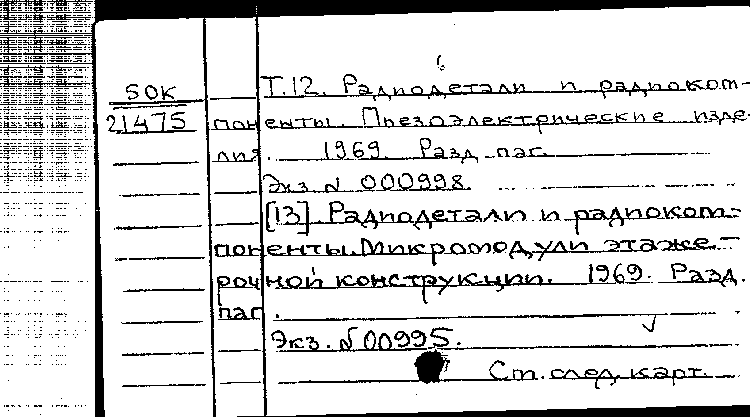 50К
21475
Т.12. Радиодетали и радиоком-
поненты. Пьезоэлектрические изде-
лия. 1969. Разд. паг.
Экз. № 000998.
[13]. Радиодетали и радиоком-
поненты. Микромодули этаже-
рочной конструкции. 1969. Разд.
паг.
Экз. № 00995.
Ст. след. карт.